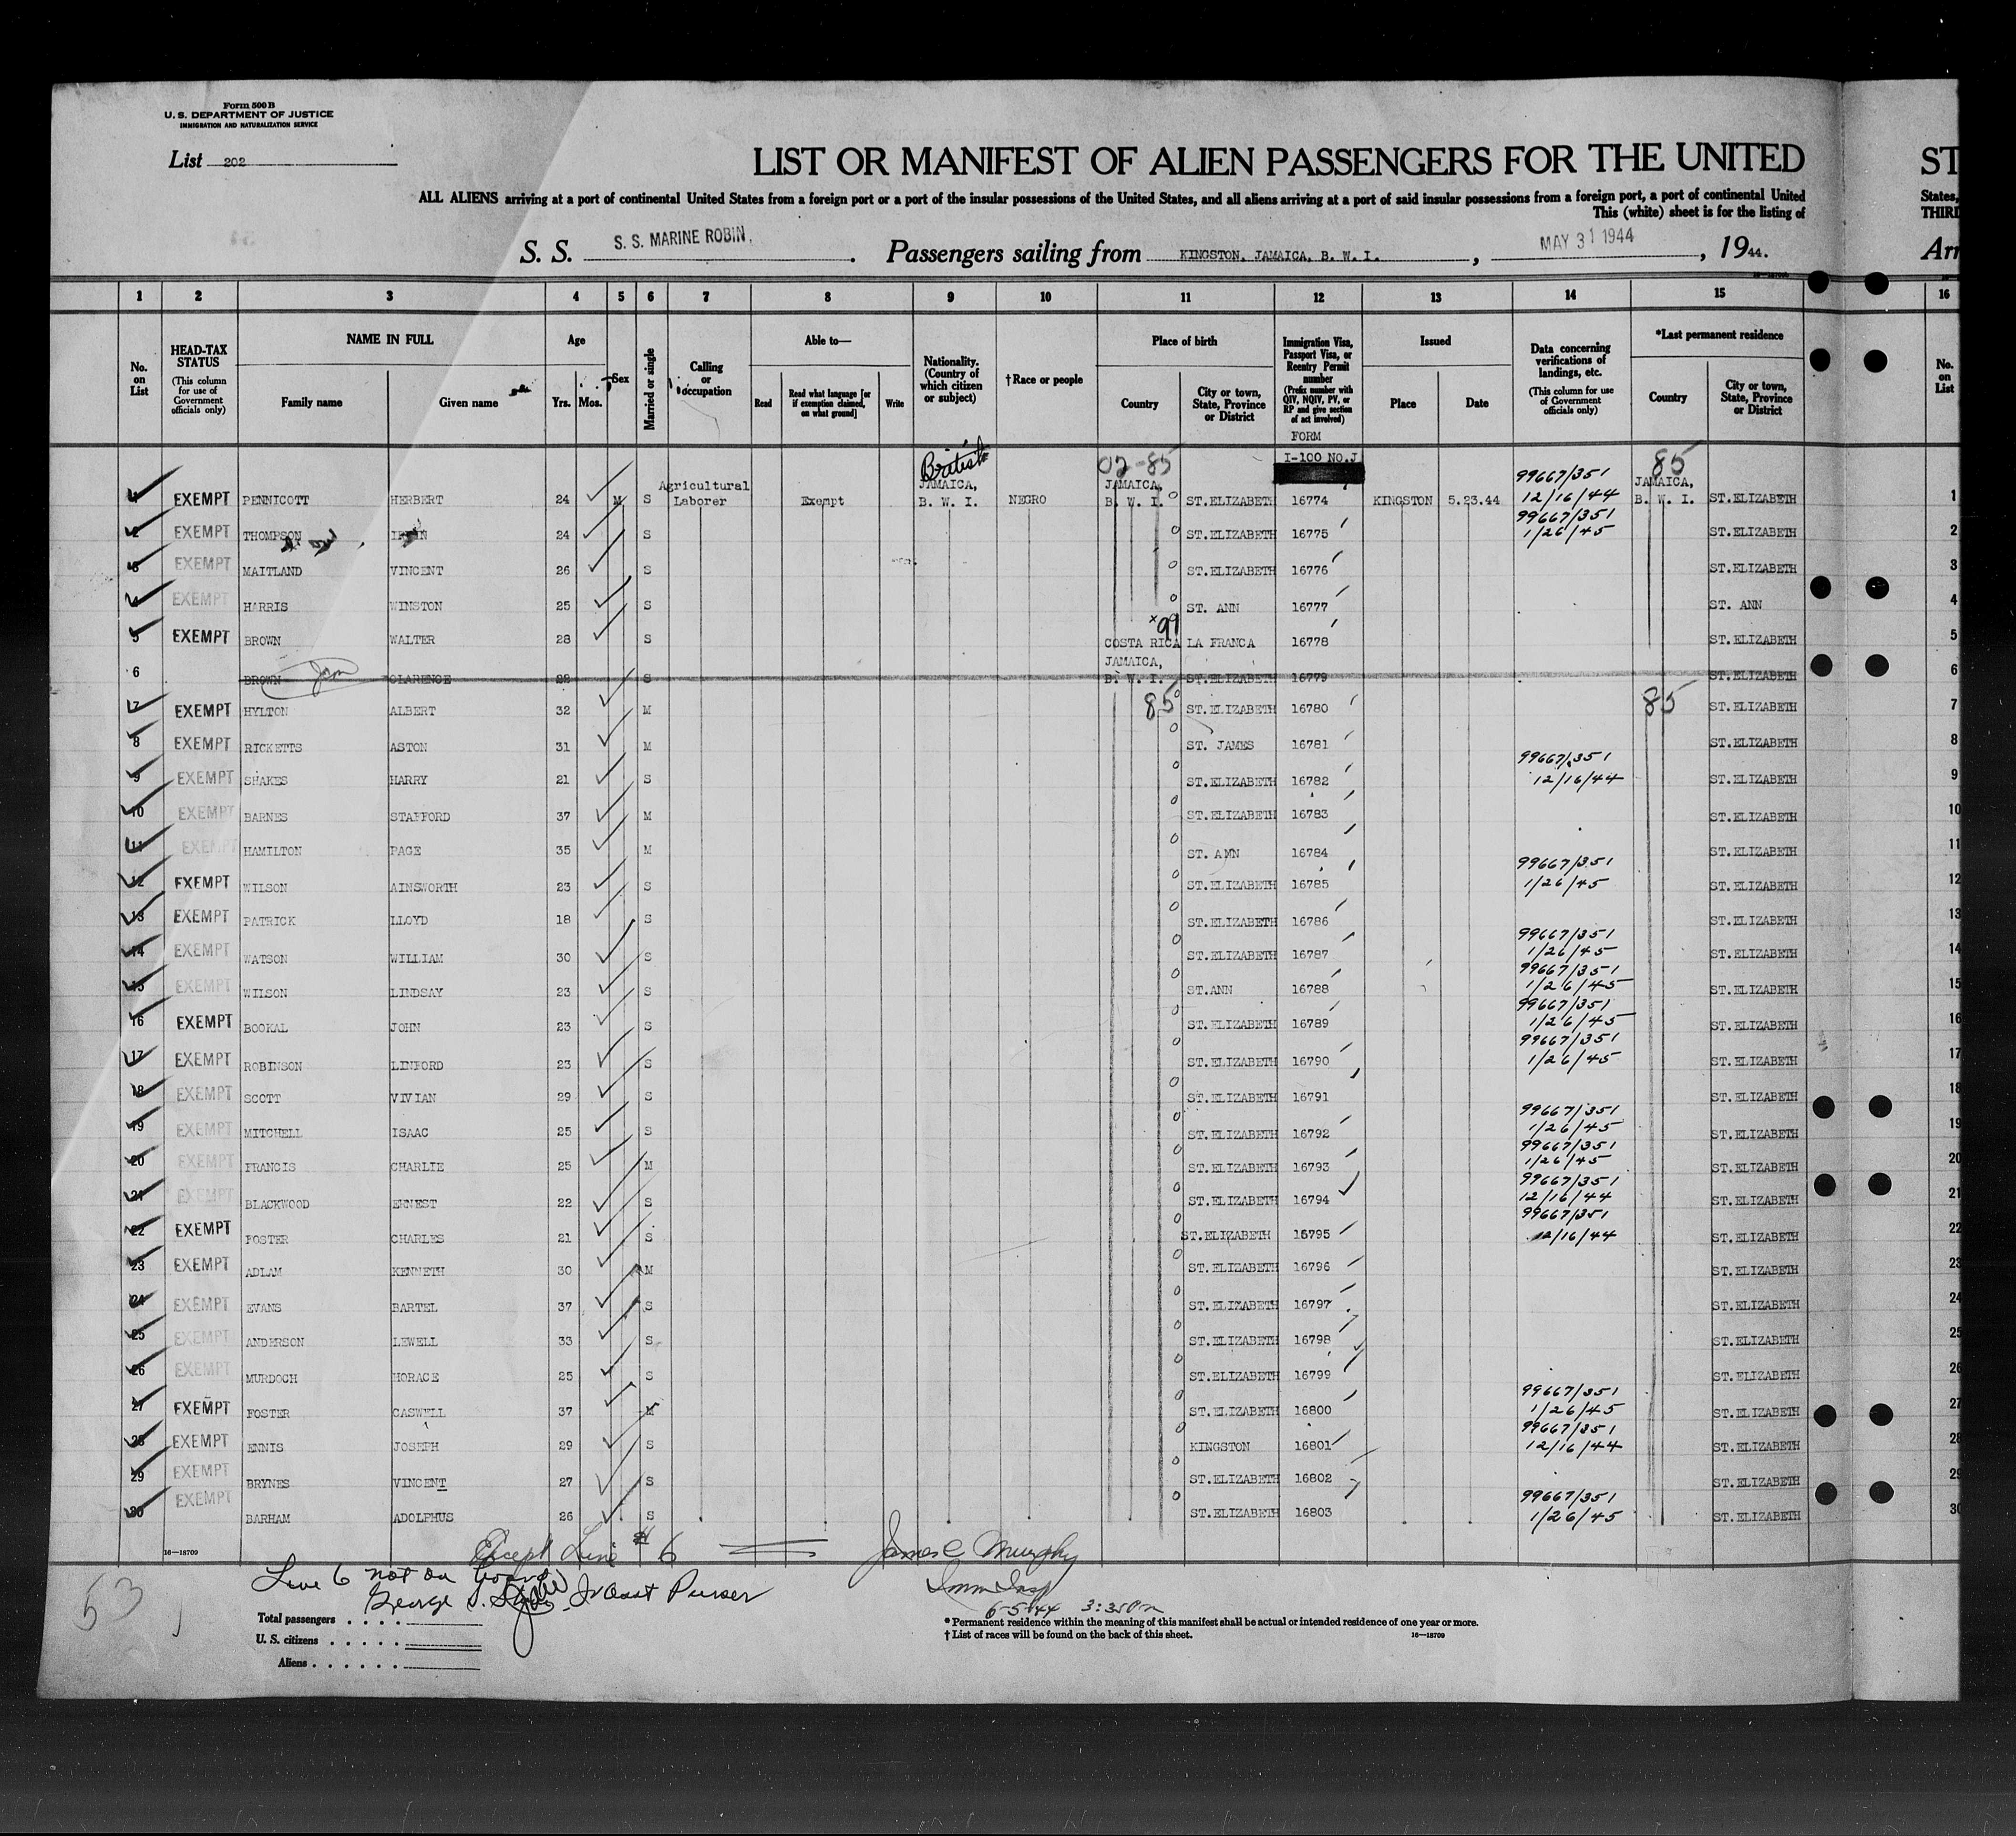 Form 500 B
U. S. DEPARTMENT OF JUSTICE
IMMIGRATION AND NATURALIZATION SERVICE
List 202
LIST OR MANIFEST OF ALIEN PASSENGERS FOR THE UNITED ST
ALL ALIENS arriving at a port of continental United States from a foreign port or a port of the insular possessions of the United States, and all aliens arriving at a port of said insular possessions from a foreign port, a port of continental United States,
This (white) sheet is for the listing of THIRD
S. S. S. S. MARINE ROBIN. Passengers sailing from KINGSTON, JAMAICA, B. W. I., MAY 31 1944, 1944. Arr
16-18709
1 2 3 4 5 6 7 8 9 10 11 12 13 14 15 16
No. on List
HEAD-TAX STATUS (This column for use of Government officials only)
NAME IN FULL Family name Given name
Age Yrs. Mos.
Sex
Married or single
Calling or occupation
Able to— Read Read what language [or if exemption claimed, on what ground] Write
Nationality. (Country of which citizen or subject)
†Race or people
Place of birth Country City or town, State, Province or District
Immigration Visa, Passport Visa, or Reentry Permit number (Prefix number with QIV, NQIV, PV, or RP and give section of act involved)
FORM
I-100 NO.J
Issued Place Date
Data concerning verifications of landings, etc. (This column for use of Government officials only)
*Last permanent residence Country City or town, State, Province or District
No. on List
British 02-85 85
1 EXEMPT PENNICOTT HERBERT 24 M S Agricultural Laborer Exempt JAMAICA, B. W. I. NEGRO JAMAICA, B. W. I. 0 ST.ELIZABETH 16774 KINGSTON 5.23.44 99667/351 12/16/44 JAMAICA, B. W. I. ST.ELIZABETH 1
2 EXEMPT THOMPSON 24 S 0 ST.ELIZABETH 16775 99667/351 1/26/45 ST.ELIZABETH 2
3 EXEMPT MAITLAND VINCENT 26 S 0 ST.ELIZABETH 16776 ST.ELIZABETH 3
4 EXEMPT HARRIS WINSTON 25 S 0 ST. ANN 16777 ST. ANN 4
5 EXEMPT BROWN WALTER 28 S x99 COSTA RICA LA FRANCA 16778 ST.ELIZABETH 5
6 BROWN CLARENCE 28 S JAMAICA, B. W. I. ST.ELIZABETH 16779 ST.ELIZABETH 6
7 EXEMPT HYLTON ALBERT 32 M 85 0 ST.ELIZABETH 16780 85 ST.ELIZABETH 7
8 EXEMPT RICKETTS ASTON 31 M 0 ST. JAMES 16781 ST.ELIZABETH 8
9 EXEMPT SHAKES HARRY 21 S 0 ST.ELIZABETH 16782 99667/351 12/16/44 ST.ELIZABETH 9
10 EXEMPT BARNES STAFFORD 37 M 0 ST.ELIZABETH 16783 ST.ELIZABETH 10
11 EXEMPT HAMILTON PAGE 35 M 0 ST. ANN 16784 ST.ELIZABETH 11
12 EXEMPT WILSON AINSWORTH 23 S 0 ST.ELIZABETH 16785 99667/351 1/26/45 ST.ELIZABETH 12
13 EXEMPT PATRICK LLOYD 18 S 0 ST.ELIZABETH 16786 ST.ELIZABETH 13
14 EXEMPT WATSON WILLIAM 30 S 0 ST.ELIZABETH 16787 99667/351 1/26/45 ST.ELIZABETH 14
15 EXEMPT WILSON LINDSAY 23 S 0 ST.ANN 16788 99667/351 1/26/45 ST.ELIZABETH 15
16 EXEMPT BOOKAL JOHN 23 S 0 ST.ELIZABETH 16789 99667/351 1/26/45 ST.ELIZABETH 16
17 EXEMPT ROBINSON LINFORD 23 S 0 ST.ELIZABETH 16790 99667/351 1/26/45 ST.ELIZABETH 17
18 EXEMPT SCOTT VIVIAN 29 S 0 ST.ELIZABETH 16791 ST.ELIZABETH 18
19 EXEMPT MITCHELL ISAAC 25 S 0 ST.ELIZABETH 16792 99667/351 1/26/45 ST.ELIZABETH 19
20 EXEMPT FRANCIS CHARLIE 25 M 0 ST.ELIZABETH 16793 99667/351 1/26/45 ST.ELIZABETH 20
21 EXEMPT BLACKWOOD ERNEST 22 S 0 ST.ELIZABETH 16794 99667/351 12/16/44 ST.ELIZABETH 21
22 EXEMPT FOSTER CHARLES 21 S 0 ST.ELIZABETH 16795 99667/351 12/16/44 ST.ELIZABETH 22
23 EXEMPT ADLAM KENNETH 30 M 0 ST.ELIZABETH 16796 ST.ELIZABETH 23
24 EXEMPT EVANS BARTEL 37 S 0 ST.ELIZABETH 16797 ST.ELIZABETH 24
25 EXEMPT ANDERSON LEWELL 33 S 0 ST.ELIZABETH 16798 ST.ELIZABETH 25
26 EXEMPT MURDOCH HORACE 25 S 0 ST.ELIZABETH 16799 ST.ELIZABETH 26
27 EXEMPT FOSTER CASWELL 37 M 0 ST.ELIZABETH 16800 99667/351 1/26/45 ST.ELIZABETH 27
28 EXEMPT ENNIS JOSEPH 29 S 0 KINGSTON 16801 99667/351 12/16/44 ST.ELIZABETH 28
29 EXEMPT BRYNES VINCENT 27 S 0 ST.ELIZABETH 16802 ST.ELIZABETH 29
30 EXEMPT BARHAM ADOLPHUS 26 S 0 ST.ELIZABETH 16803 99667/351 1/26/45 ST.ELIZABETH 30
16—18709
Except Line # 6 James C Murphy
Line 6 not on board Imm Insp
George Purser 6-5-44 3:35
53
Total passengers
U. S. citizens
Aliens
* Permanent residence within the meaning of this manifest shall be actual or intended residence of one year or more.
† List of races will be found on the back of this sheet. 16—18709